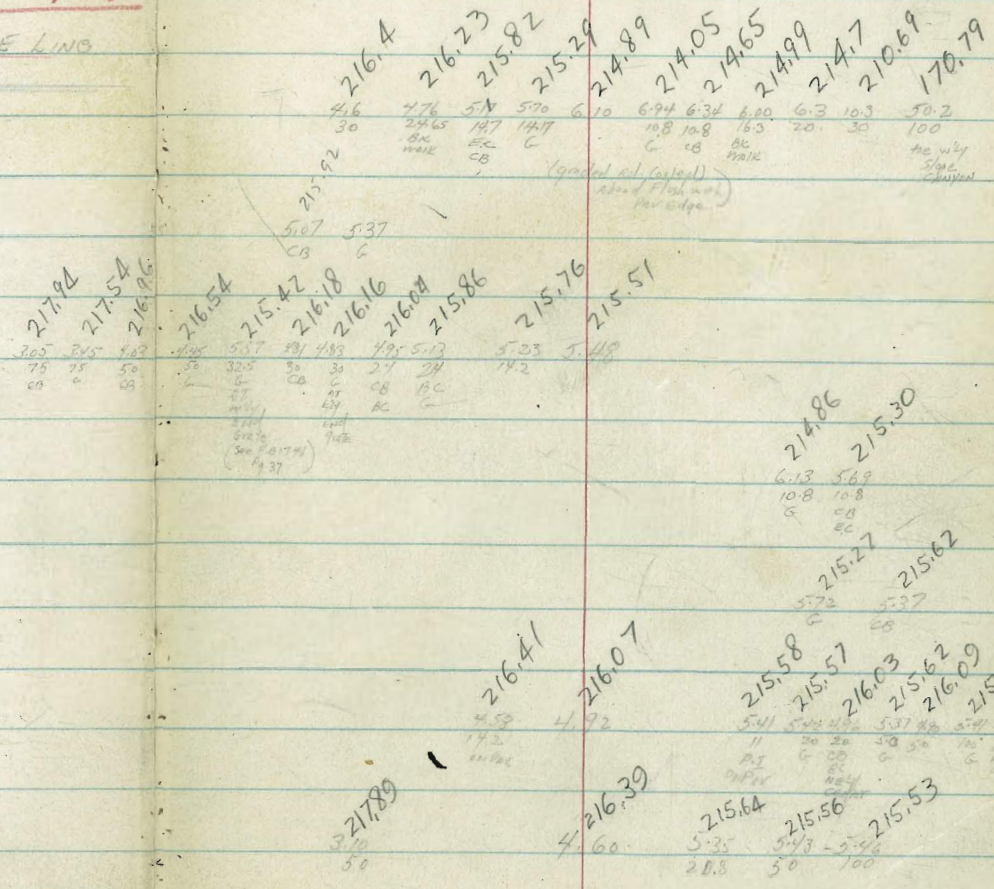 E LINE
216.4 216.23 215.82 215.29 214.89 214.05 214.65 214.99 214.7 210.69 170.79
4.6 4.76 5.17 5.70 6.10 6.94 6.34 6.00 6.3 10.3 50.2
30 24.65 14.7 14.17 10.8 10.8 16.3 20 30 100
BK EC G G CB BK
walk CB walk Slope
CANYON
215.92
5.07 5.37
CB G
217.94 217.54 216.96 216.54 215.42 216.18 216.16 216.04 215.86 215.76 215.51
3.05 3.45 4.03 4.45 5.57 4.81 4.83 4.95 5.13 5.23 5.48
75 75 50 50 32.5 30 30 24 24 14.2
CB G CB G G CB G CB BC
AT AT BC G
END END
Grate grate
37
214.86 215.30
6.13 5.69
10.8 10.8
G CB
EC
215.27 215.62
5.72 5.37
G CB
216.41 216.07 215.58 215.57 216.03 215.62 216.09 215
4.58 4.92 5.41 5.42 4.96 5.37 4.90 5.41
14.2 11 20 20 50 50 100
G G G
217.89 216.39 215.64 215.56 215.53
3.10 4.60 5.35 5.43 5.46
50 20.8 50 100